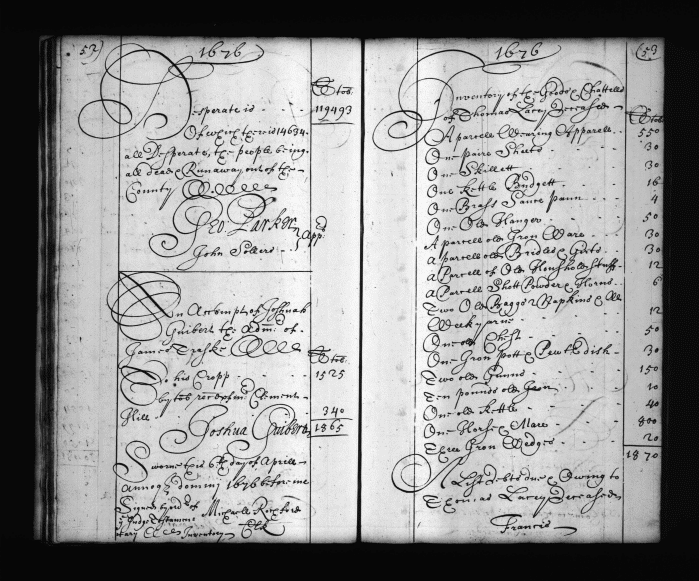 52)
1676
ll tob.
Desperate is - - - 119493
Of wch there is 14634
all Desperate, the people being
all dead & Runaway out of the
County
Geo Parker
John Sollers
} App:
An Accompt of Joshuah
Guibert the Adm: of
James Traske
ll tob.
To his Cropp - - - 1525
By tes recept from Clement
Hill 340
Joshua Guibert 1865
Sworne this 6th day of Aprill
annoq domini 1676 before me
Michaell Rochford
Clk
1676
(53
Inventory of the Goods & Chattells
of Thomas Lacey Deceased
ll tob.
A parcell Wearing Apparell - 550
One paire Sheets - - 30
One Skillett - - - 30
One Kettle Budgett - - 16
One Brass Sauce pann - - 4
One Old Hanger - - 50
A parcell old Iron Ware - 30
a parcell old Bridles & Girts - 30
a Parcell of Old Houshold stuff - 12
a Parcell Shott Powder & Horns - 6
Two Old Baggs 2 Napkins & All
Weekyarne - - 12
One old Chest - - - 50
One Iron Pott & Pewt dish - 30
Two old Gunns - - - 150
Ten pounds old Iron - - 10
One old Kettle - - - 40
One Horse & Mare - - 800
Three Iron Wedges - - 20
1870
A List debts due & Owing to
Thomas Lacey Deceased
Francis